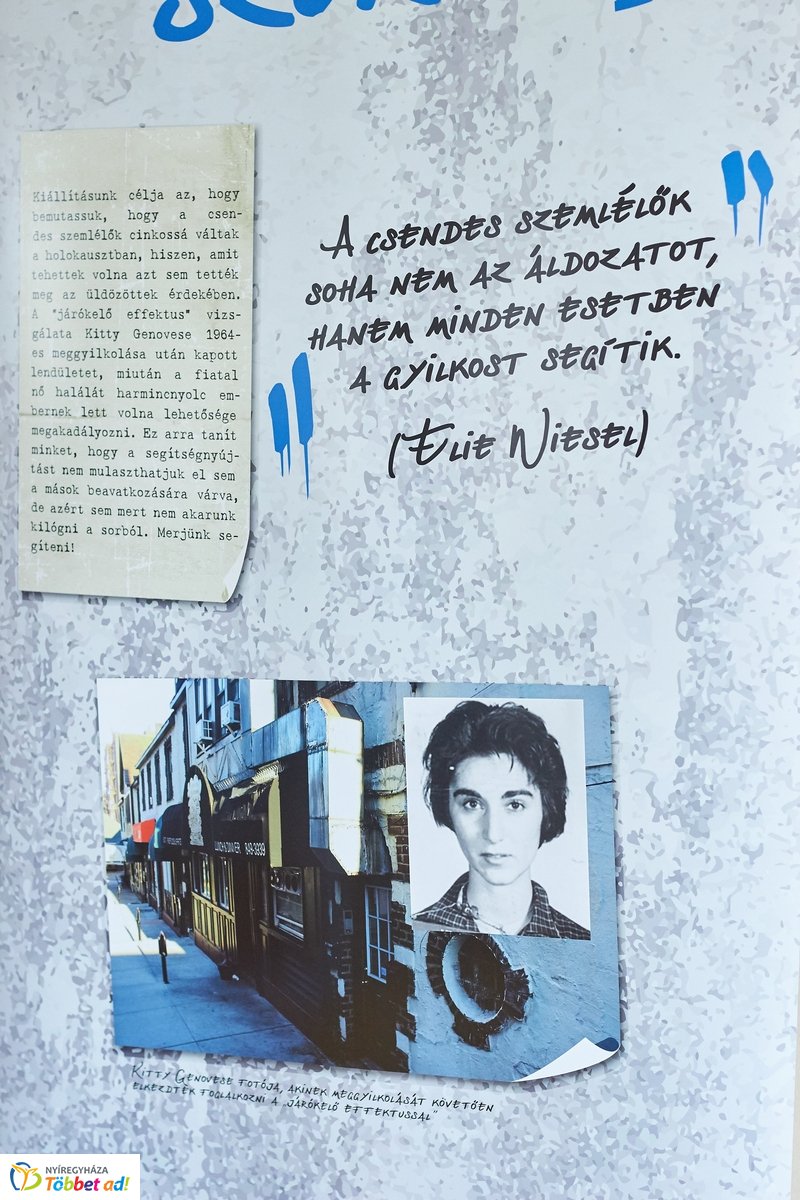 Kiállításunk célja az, hogy
bemutassuk, hogy a csen-
des szemlélők cinkossá váltak
a holokausztban, hiszen, amit
tehettek volna azt sem tették
meg az üldözöttek érdekében.
A "járókelő effektus" vizs-
gálata Kitty Genovese 1964-
es meggyilkolása után kapott
lendületet, miután a fiatal
nő halálát harmincnyolc em-
bernek lett volna lehetősége
megakadályozni. Ez arra tanít
minket, hogy a segítségnyúj-
tást nem mulaszthatjuk el sem
a mások beavatkozására várva,
de azért sem mert nem akarunk
kilógni a sorból. Merjünk se-
gíteni!
A CSENDES SZEMLÉLŐK
SOHA NEM AZ ÁLDOZATOT,
HANEM MINDEN ESETBEN
A GYILKOST SEGÍTIK.
(ELIE WIESEL)
LUNCH & DINNER 849-3939
KITTY GENOVESE FOTÓJA, AKINEK MEGGYILKOLÁSÁT KÖVETŐEN
ELKEZDTÉK FOGLALKOZNI A „JÁRÓKELŐ EFFEKTUSSAL"
NYÍREGYHÁZA
Többet ad!